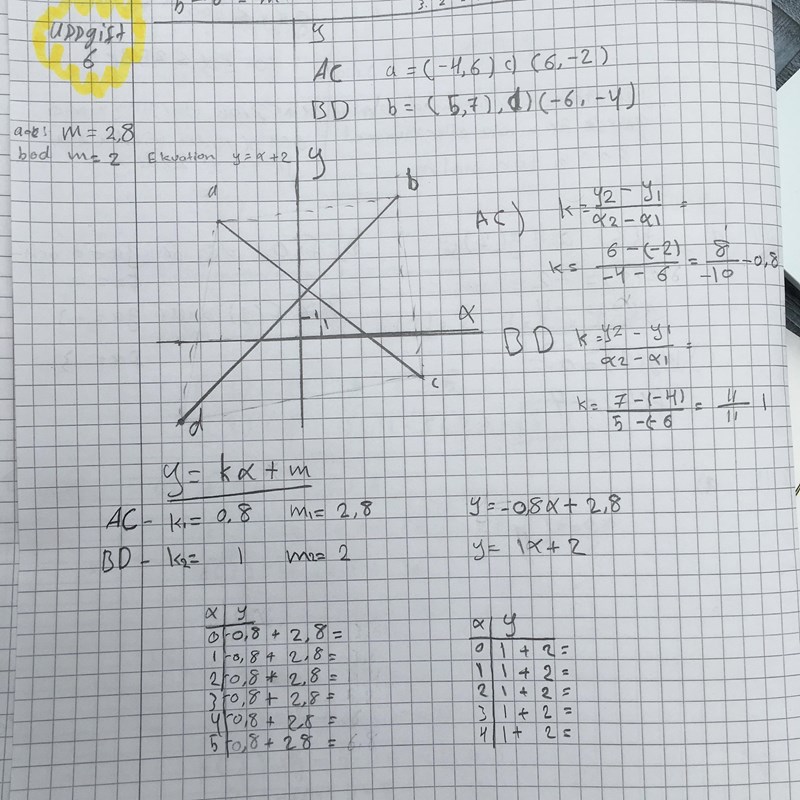 Uppgift
6
y
AC a = (-4,6) c) (6,-2)
BD b = (5,7), d) (-6, -4)
m = 2,8
bod m = 2 Ekvation y = x + 2 y
a
b
AC) k = y2 - y1 / x2 - x1 =
k = 6 - (-2) / -4 - 6 = 8 / -10 -0,8
1
x
BD k = y2 - y1 / x2 - x1 =
c
k = 7 - (-4) / 5 - (-6 = 11 / 11 1
d
y = kx + m
AC - k1 = 0,8 m1 = 2,8 y = -0,8x + 2,8
BD - k2 = 1 m2 = 2 y = 1x + 2
x | y
0 | -0,8 + 2,8 =
1 | -0,8 + 2,8 =
2 | -0,8 + 2,8 =
3 | -0,8 + 2,8 =
4 | -0,8 + 2,8 =
5 | -0,8 + 28 =
x | y
0 | 1 + 2 =
1 | 1 + 2 =
2 | 1 + 2 =
3 | 1 + 2 =
4 | 1 + 2 =